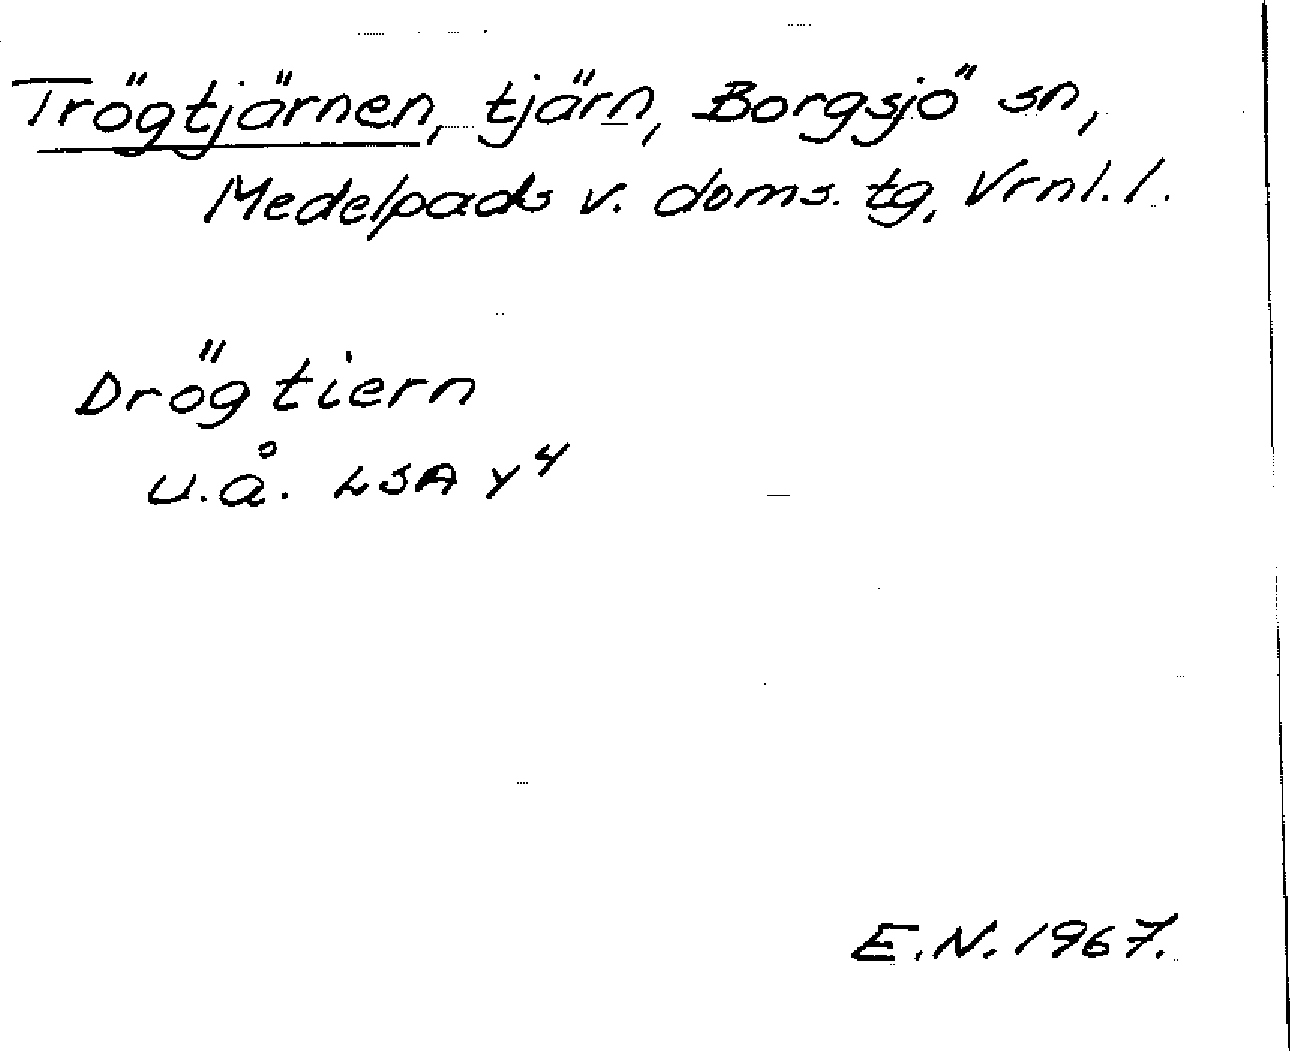 Trögtjärnen, tjärn, Borgsjö sn,
Medelpads v. doms. tg, Vrnl. l.
Drögtiern
u.å. LSA Y4
E.N. 1967.